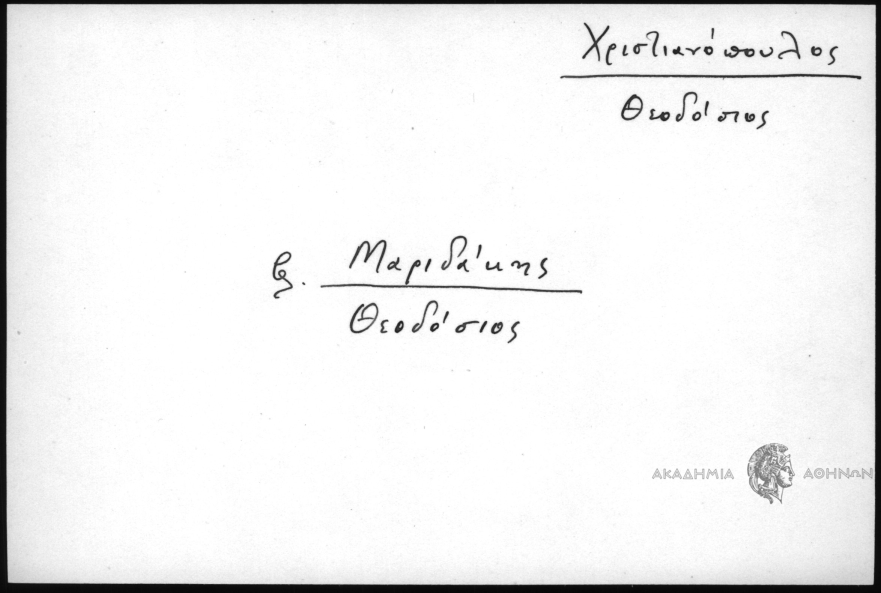 Χριστιανόπουλος
Θεοδόσιος
βλ. Μαριδάκης
Θεοδόσιος
ΑΚΑΔΗΜΙΑ ΑΘΗΝΩΝ